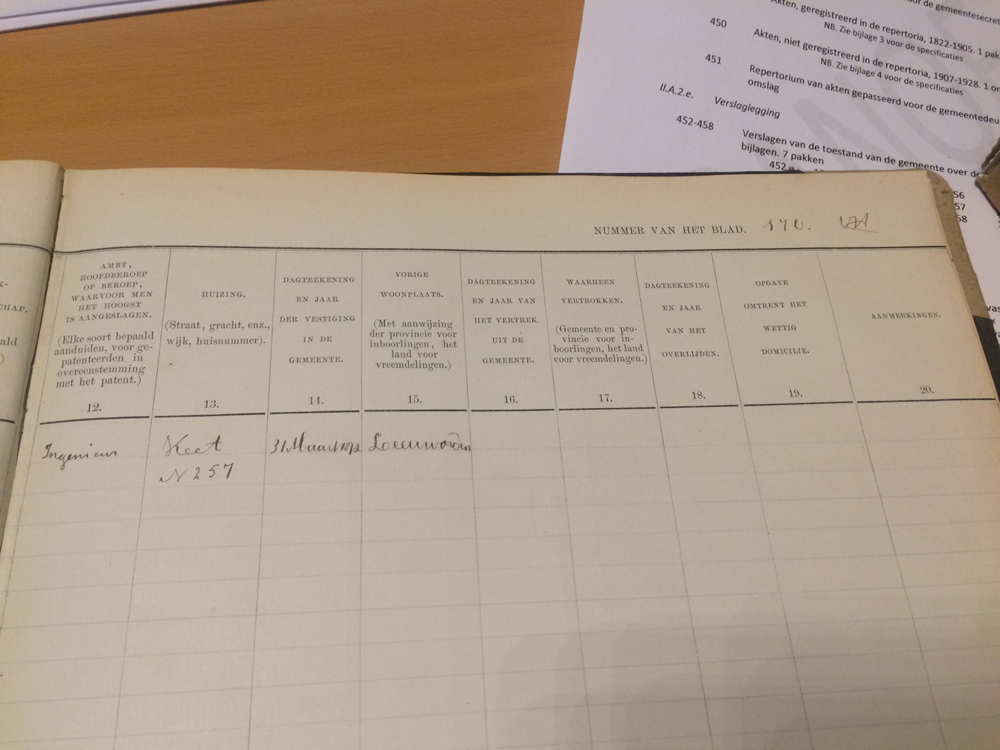 or de gemeentesecret
450 Akten, geregistreerd in de repertoria, 1822-1905. 1 pak
NB. Zie bijlage 3 voor de specificaties
Akten, niet geregistreerd in de repertoria, 1907-1928. 1 or
NB. Zie bijlage 4 voor de specificaties
451 Repertorium van akten gepasseerd voor de gemeentedeu
omslag
II.A.2.e. Verslaglegging
452-458 Verslagen van de toestand van de gemeente over de
bijlagen. 7 pakken
452
56
57
58
NUMMER VAN HET BLAD. 170.
K-
CHAP.
ald
)
AMBT,
HOOFDBEROEP
OF BEROEP,
WAARVOOR MEN
HET HOOGST
IS AANGESLAGEN.
(Elke soort bepaald
aanduiden, voor ge-
patenteerden in
overeenstemming
met het patent.)
12.
HUIZING.
(Straat, gracht, enz.,
wijk, huisnummer).
13.
DAGTEEKENING
EN JAAR
DER VESTIGING
IN DE
GEMEENTE.
14.
VORIGE
WOONPLAATS.
(Met aanwijzing
der provincie voor
inboorlingen, het
land voor
vreemdelingen.)
15.
DAGTEEKENING
EN JAAR VAN
HET VERTREK
UIT DE
GEMEENTE.
16.
WAARHEEN
VERTROKKEN.
(Gemeente en pro-
vincie voor in-
boorlingen, het land
voor vreemdelingen.)
17.
DAGTEEKENING
EN JAAR
VAN HET
OVERLIJDEN.
18.
OPGAVE
OMTRENT HET
WETTIG
DOMICILIE.
19.
AANMERKINGEN.
20.
Ingenieur
Keet
N 257
31 Maart 1872
Leeuwarden